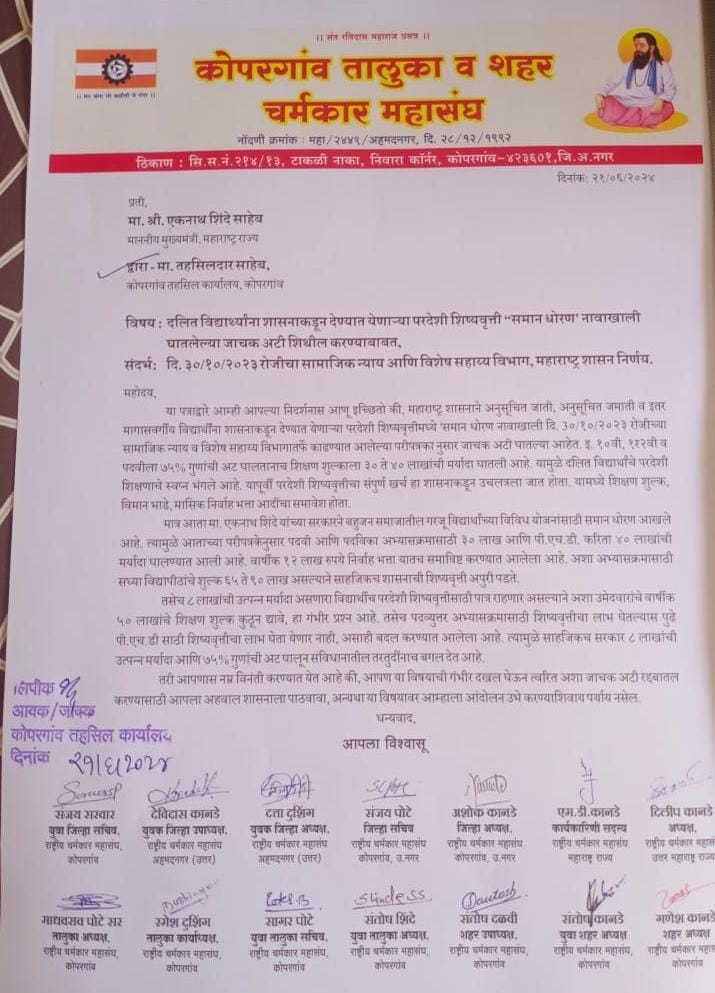 ।। संत रविदास महाराज प्रसन्न ।।
कोपरगांव तालुका व शहर
चर्मकार महासंघ
नोंदणी क्रमांक : महा/२४४९/अहमदनगर, दि. २८/१२/१९९२
ठिकाण : सि.स.नं.२१४/१३, टाकळी नाका, निवारा कॉर्नर, कोपरगांव-४२३६०१,जि.अ.नगर
दिनांक: २१/०६/२०२४
प्रती,
मा. श्री. एकनाथ शिंदे साहेब
माननीय मुख्यमंत्री, महाराष्ट्र राज्य
द्वारा - मा. तहसिलदार साहेब,
कोपरगांव तहसिल कार्यालय, कोपरगांव
विषय : दलित विद्यार्थ्यांना शासनाकडून देण्यात येणाऱ्या परदेशी शिष्यवृत्ती "समान धोरण' नावाखाली
घातलेल्या जाचक अटी शिथील करण्याबाबत,
संदर्भ: दि. ३०/१०/२०२३ रोजीचा सामाजिक न्याय आणि विशेष सहाय्य विभाग, महाराष्ट्र शासन निर्णय.
महोदय,
या पत्राद्वारे आम्ही आपल्या निदर्शनास आणू इच्छितो की, महाराष्ट्र शासनाने अनुसूचित जाती, अनुसूचित जमाती व इतर
मागासवर्गीय विद्यार्थींना शासनाकडून देण्यात येणाऱ्या परदेशी शिष्यवृत्तीमध्ये 'समान धोरण नावाखाली दि. ३०/१०/२०२३ रोजीच्या
सामाजिक न्याय व विशेष सहाय्य विभागातर्फे काढण्यात आलेल्या परीपत्रका नुसार जाचक अटी घातल्या आहेत. इ. १०वी, १२२वी व
पदवीला ७५% गुणांची अट घालतानाच शिक्षण शुल्काला ३० ते ४० लाखांची मर्यादा घातली आहे. यामुळे दलित विद्यार्थांचे परदेशी
शिक्षणाचे स्वप्न भंगले आहे. यापूर्वी परदेशी शिष्यवृत्तीचा संपुर्ण खर्च हा शासनाकडून उचलत्रला जात होता. यामध्ये शिक्षण शुल्क,
विमान भाडे, मासिक निर्वाह भत्ता आदींचा समावेश होता.
मात्र आता मा. एकनाथ शिंदे यांच्या सरकारने बहुजन समाजातील गरजू विद्यार्थ्यांच्या विविध योजनांसाठी समान धोरण आखले
आहे. त्यामुळे आताच्या परीपत्रकेनुसार पदवी आणि पदविका अभ्यासक्रमासाठी ३० लाख आणि पी.एच.डी. करिता ४० लाखांची
मर्यादा घालण्यात आली आहे. वार्षीक १२ लाख रुपये निर्वाह भत्ता यातच समाविष्ट करण्यात आलेला आहे. अशा अभ्यासक्रमासाठी
सध्या विद्यापीठांचे शुल्क ६५ ते ९० लाख असल्याने साहजिकच शासनाची शिष्यवृत्ती अपुरी पडते.
तसेच ८ लाखांची उत्पन्न मर्यादा असणारा विद्यार्थीच परदेश शिष्यवृत्तीसाठी पात्र राहणार असल्याने अशा उमेदवारांचे वार्षीक
५० लाखांचे शिक्षण शुल्क कुठून द्यावे, हा गंभीर प्रश्न आहे. तसेच पदव्युत्तर अभ्यासक्रमासाठी शिष्यवृत्तीचा लाभ घेतल्यास पुढे
पी.एच.डी साठी शिष्यवृत्तीचा लाभ घेता येणार नाही, असाही बदल करण्यात आलेला आहे. त्यामुळे साहजिकच सरकार ८ लाखांची
उत्पन मर्यादा आणि ७५% गुणांची अट घालून संविधानातील तरतुदींनाच बगल देत आहे.
तरी आपणास नम्र विनंती करण्यात येत आहे की, आपण या विषयाची गंभीर दखल घेऊन त्वरित अशा जाचक अटी रद्दबातल
करण्यासाठी आपला अहवाल शासनाला पाठवावा, अन्यथा या विषयावर आम्हाला आंदोलन उभे करण्याशिवाय पर्याय नसेल.
धन्यवाद,
आपला विश्वासू
लिपीक
आवक/जावक
कोपरगांव तहसिल कार्यालय
दिनांक २१/६/२०२४
संजय सरवार देविदास कानडे दत्ता दुशिंग संजय पोटे अशोक कानडे एम.डी.कानडे दिलीप कानडे
युवा जिल्हा सचिव, युवक जिल्हा उपाध्यक्ष, युवक जिल्हा अध्यक्ष, जिल्हा सचिव जिल्हा अध्यक्ष, कार्यकारिणी सदस्य अध्यक्ष,
राष्ट्रीय चर्मकार महासंघ, राष्ट्रीय चर्मकार महासंघ राष्ट्रीय चर्मकार महासंघ राष्ट्रीय चर्मकार महासंघ राष्ट्रीय चर्मकार महासंघ राष्ट्रीय चर्मकार महासंघ राष्ट्रीय चर्मकार
कोपरगांव अहमदनगर (उत्तर) अहमदनगर (उत्तर) कोपरगांव, उ.नगर कोपरगांव, उ.नगर महाराष्ट्र राज्य उत्तर महाराष्ट्र
माधवराव पोटे सर रमेश दुशिंग सागर पोटे संतोष शिंदे संतोष दळवी संतोष कानडे गणेश कानडे
तालुका अध्यक्ष, तालुका कार्याध्यक्ष, युवा तालुका सचिव, युवा तालुका अध्यक्ष, शहर उपाध्यक्ष, युवा शहर अध्यक्ष शहर अध्यक्ष
राष्ट्रीय चर्मकार महासंघ, राष्ट्रीय चर्मकार महासंघ राष्ट्रीय चर्मकार महासंघ, राष्ट्रीय चर्मकार महासंघ, राष्ट्रीय चर्मकार महासंघ राष्ट्रीय चर्मकार महासंघ राष्ट्रीय चर्मकार
कोपरगांव कोपरगांव कोपरगांव कोपरगांव कोपरगांव कोपरगांव कोपरगांव